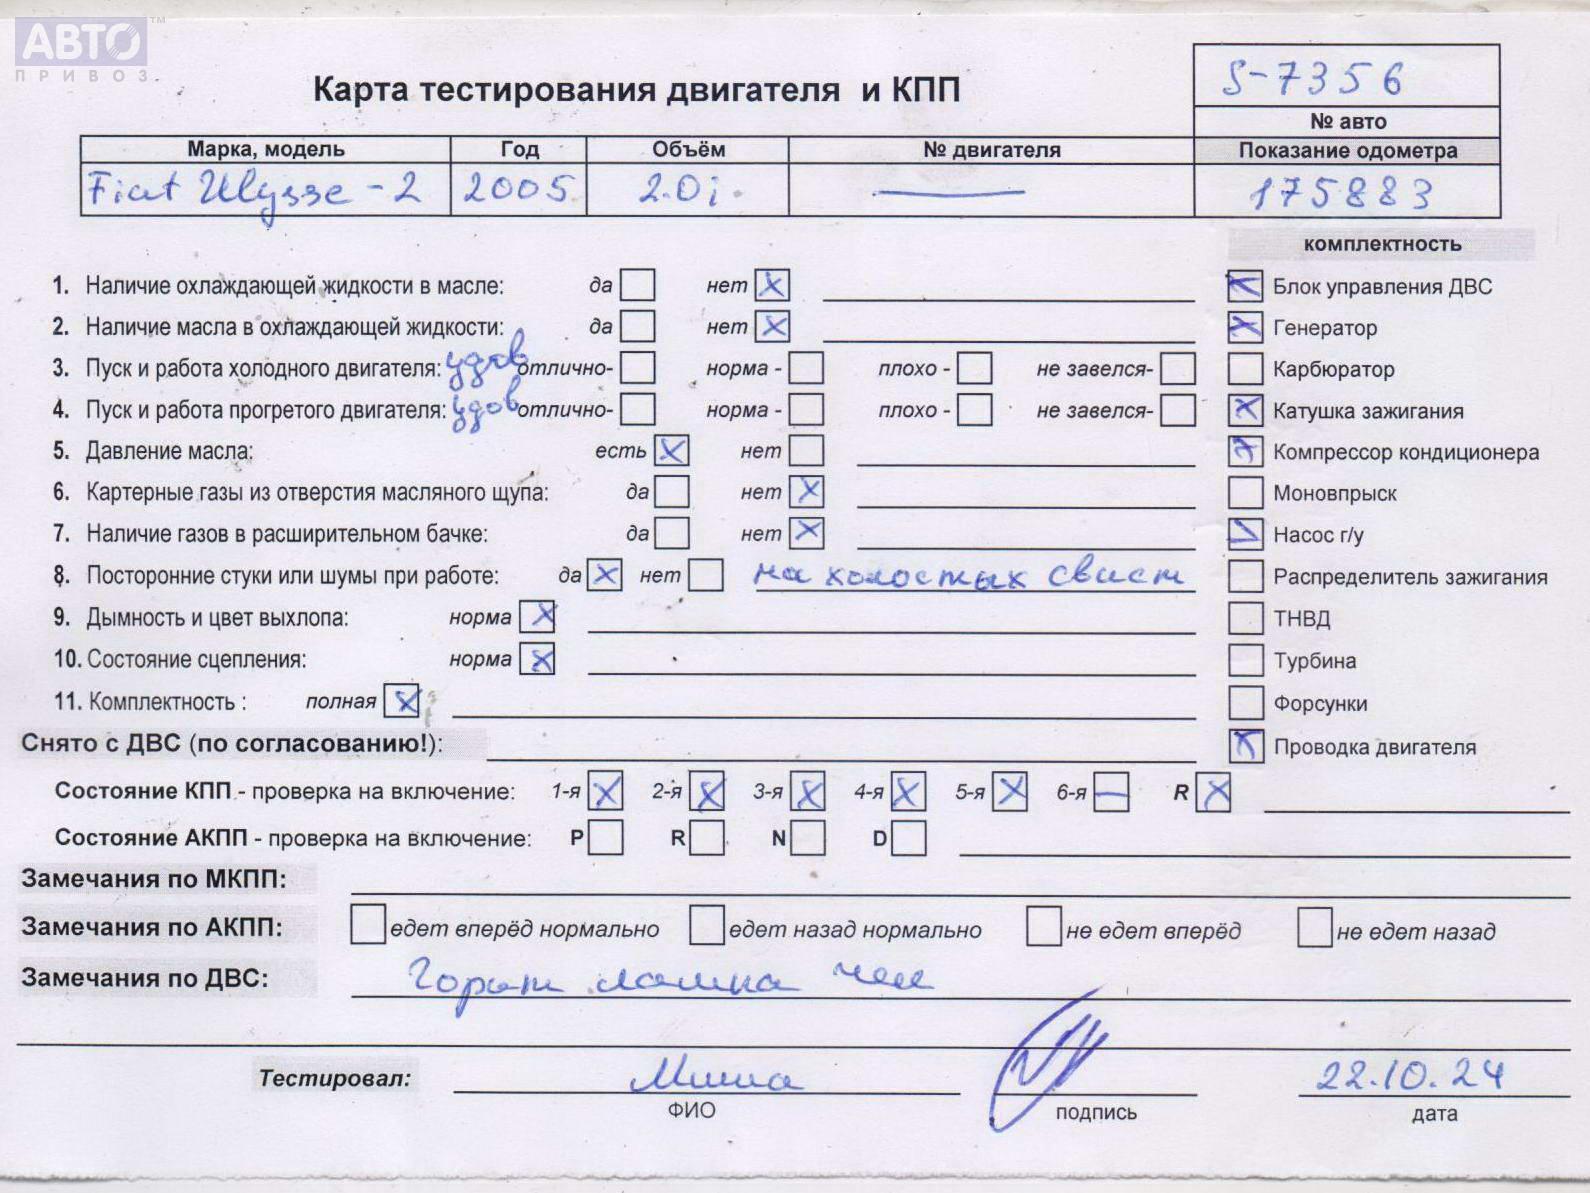 АВТО ™
ПРИВОЗ
Карта тестирования двигателя и КПП
S-7356
№ авто
Марка, модель Год Объём № двигателя Показание одометра
Fiat Ulysse-2 2005 2.0i — 175883
комплектность
1. Наличие охлаждающей жидкости в масле: да нет X Блок управления ДВС X
2. Наличие масла в охлаждающей жидкости: да нет X Генератор X
3. Пуск и работа холодного двигателя: удов отлично- норма - плохо - не завелся- Карбюратор
4. Пуск и работа прогретого двигателя: удов отлично- норма - плохо - не завелся- X Катушка зажигания
5. Давление масла: есть X нет X Компрессор кондиционера
6. Картерные газы из отверстия масляного щупа: да нет X Моновпрыск
7. Наличие газов в расширительном бачке: да нет X Насос г/у
8. Посторонние стуки или шумы при работе: да X нет на холостых свист Распределитель зажигания
9. Дымность и цвет выхлопа: норма X ТНВД
10. Состояние сцепления: норма X Турбина
11. Комплектность : полная X Форсунки
Снято с ДВС (по согласованию!): X Проводка двигателя
Состояние КПП - проверка на включение: 1-я X 2-я X 3-я X 4-я X 5-я X 6-я — R X
Состояние АКПП - проверка на включение: P R N D
Замечания по МКПП:
Замечания по АКПП: едет вперёд нормально едет назад нормально не едет вперёд не едет назад
Замечания по ДВС: Горит лампа чек
Тестировал: Миша 22.10.24
ФИО подпись дата